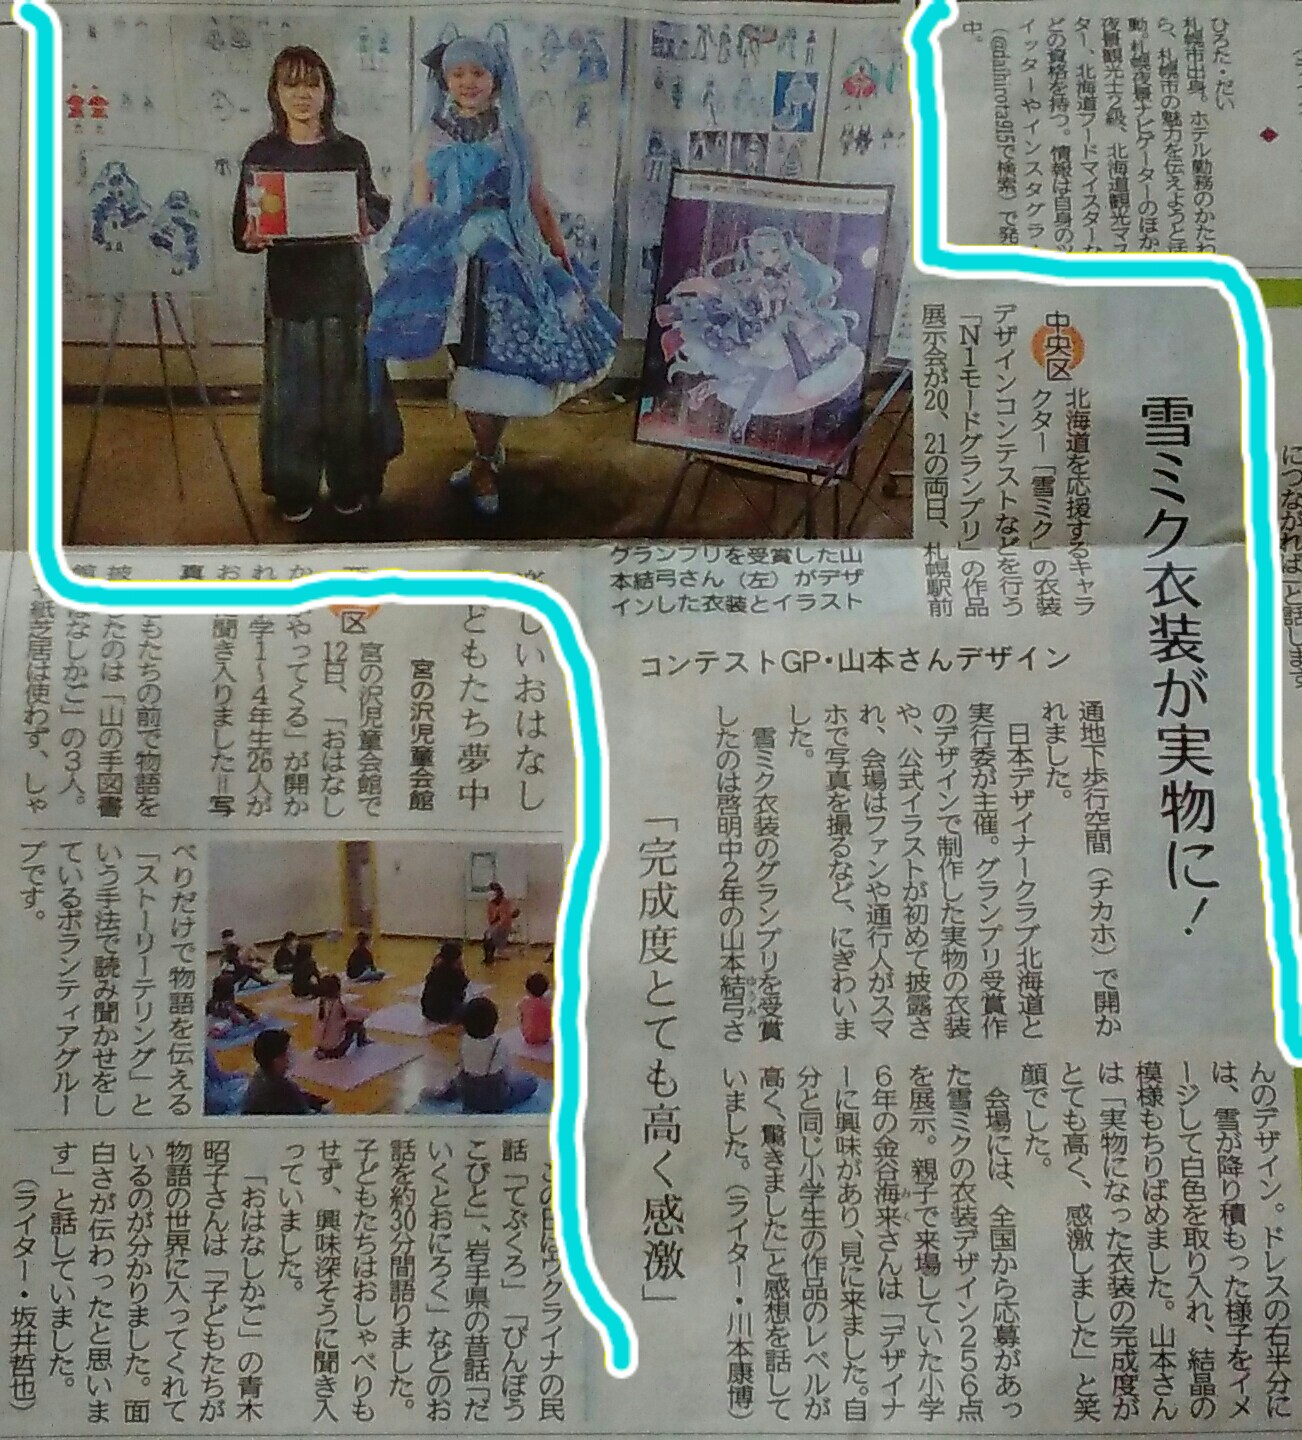 ひろた・だい
札幌市出身。ホテル勤務のかたわ
ら、札幌市の魅力を伝えようと活
動。札幌夜景ナビゲーターのほか、
夜景観光士2級、北海道観光マス
ター、北海道フードマイスターな
どの資格を持つ。情報は自身のツ
イッターやインスタグラム
(@daihirota915で検索)で発
中。
につながれば」と話します
雪ミク衣装が実物に!
コンテストGP・山本さんデザイン
「完成度とても高く感激」
中央区
北海道を応援するキャラ
クター「雪ミク」の衣装
デザインコンテストなどを行う
「N1モードグランプリ」の作品
展示会が20、21の両日、札幌駅前
通地下歩行空間(チカホ)で開か
れました。
日本デザイナークラブ北海道と
実行委が主催。グランプリ受賞作
のデザインで制作した実物の衣装
や、公式イラストが初めて披露さ
れ、会場はファンや通行人がスマ
ホで写真を撮るなど、にぎわいま
した。
雪ミク衣装のグランプリを受賞
したのは啓明中2年の山本結弓さ
ゆうみ
んのデザイン。ドレスの右半分に
は、雪が降り積もった様子をイメ
ージして白色を取り入れ、結晶の
模様もちりばめました。山本さん
は「実物になった衣装の完成度が
とても高く、感激しました」と笑
顔でした。
会場には、全国から応募があっ
た雪ミクの衣装デザイン256点
を展示。親子で来場していた小学
6年の金谷海来さんは「デザイナ
みく
ーに興味があり、見に来ました。自
分と同じ小学生の作品のレベルが
高く、驚きました」と感想を話して
いました。(ライター・川本康博)
グランプリを受賞した山
本結弓さん(左)がデザ
インした衣装とイラスト
しいおはなし
どもたち夢中
宮の沢児童会館
区
宮の沢児童会館で
12日、「おはなし
やってくる」が開か
学1~4年生26人が
聞き入りました=写
真
どもたちの前で物語を
したのは「山の手図書
はなしかご」の3人。
や紙芝居は使わず、しゃ
べりだけで物語を伝える
「ストーリーテリング」と
いう手法で読み聞かせをし
ているボランティアグルー
プです。
この日はウクライナの民
話「てぶくろ」「びんぼう
こびと」、岩手県の昔話「だ
いくとおにろく」などのお
話を約30分間語りました。
子どもたちはおしゃべりも
せず、興味深そうに聞き入
っていました。
「おはなしかご」の青木
昭子さんは「子どもたちが
物語の世界に入ってくれて
いるのが分かりました。面
白さが伝わったと思いま
す」と話していました。
(ライター・坂井哲也)